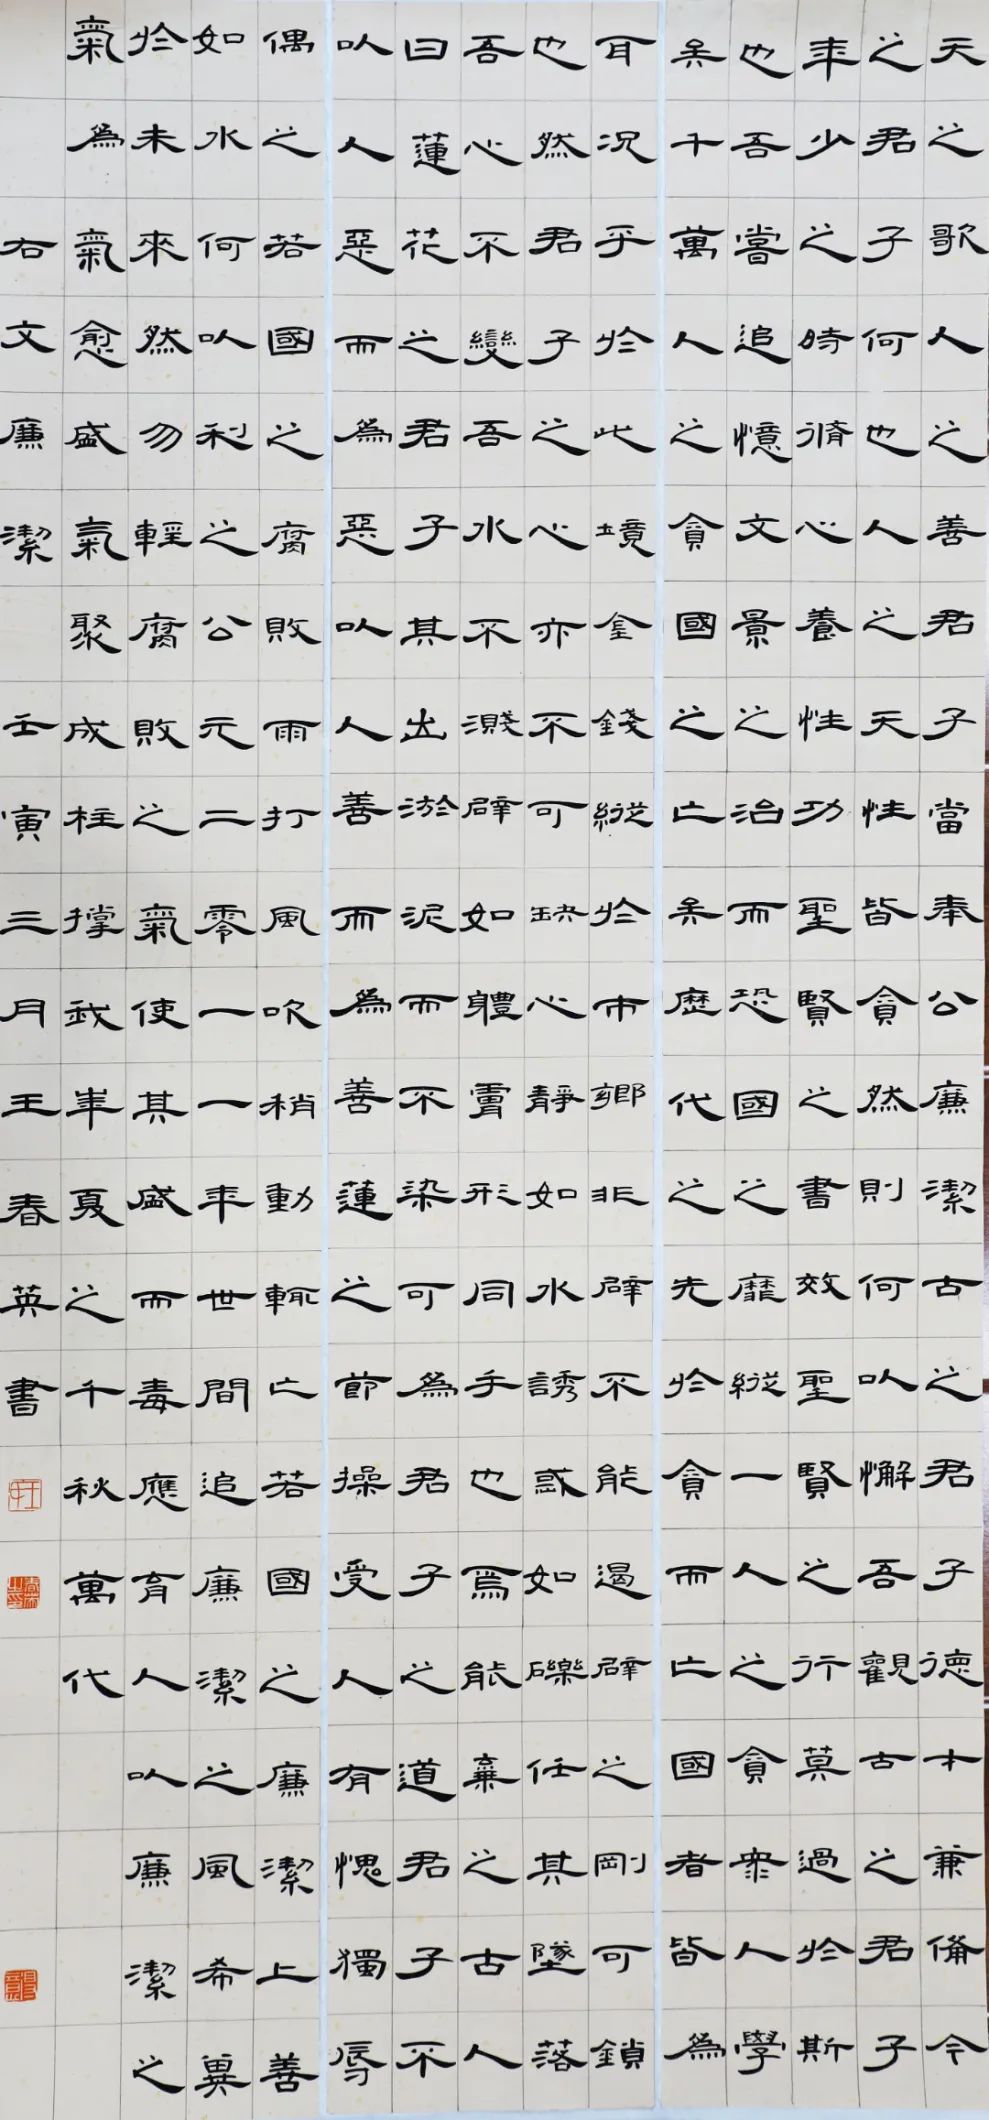 天之歌人之善君子當奉公廉潔古之君子德才兼備今
之君子何也人之天性皆貪然則何以懈吾觀古之君子
年少之時脩心養性功聖賢之書效聖賢之行莫過於斯
也吾嘗追憶文景之治而恐國之靡縱一人之貪衆人學
矣十萬人之貪國之亡矣歷代之先於貪而亡國者皆為
耳況乎於此境金錢縱於市鄉非辟不能遏辟之剛可鎖
也然君子之心亦不可缺心靜如水誘惑如礫任其墜落
吾心不變吾水不濺辟如體膚形同手也焉能棄之古人
曰蓮花之君子其出淤泥而不染可為君子之道君子不
以人惡而為惡以人善而為善蓮之節操受人有愧獨辱
偶之若國之腐敗雨打風吹稍動輒亡若國之廉潔上善
如水何以利之公元二零一一年世間追廉潔之風希冀
於未來然勿輕腐敗之氣使其盛而毒應育人以廉潔之
氣為氣愈盛氣聚成柱撐我華夏之千秋萬代
右文廉潔 壬寅三月王春英書